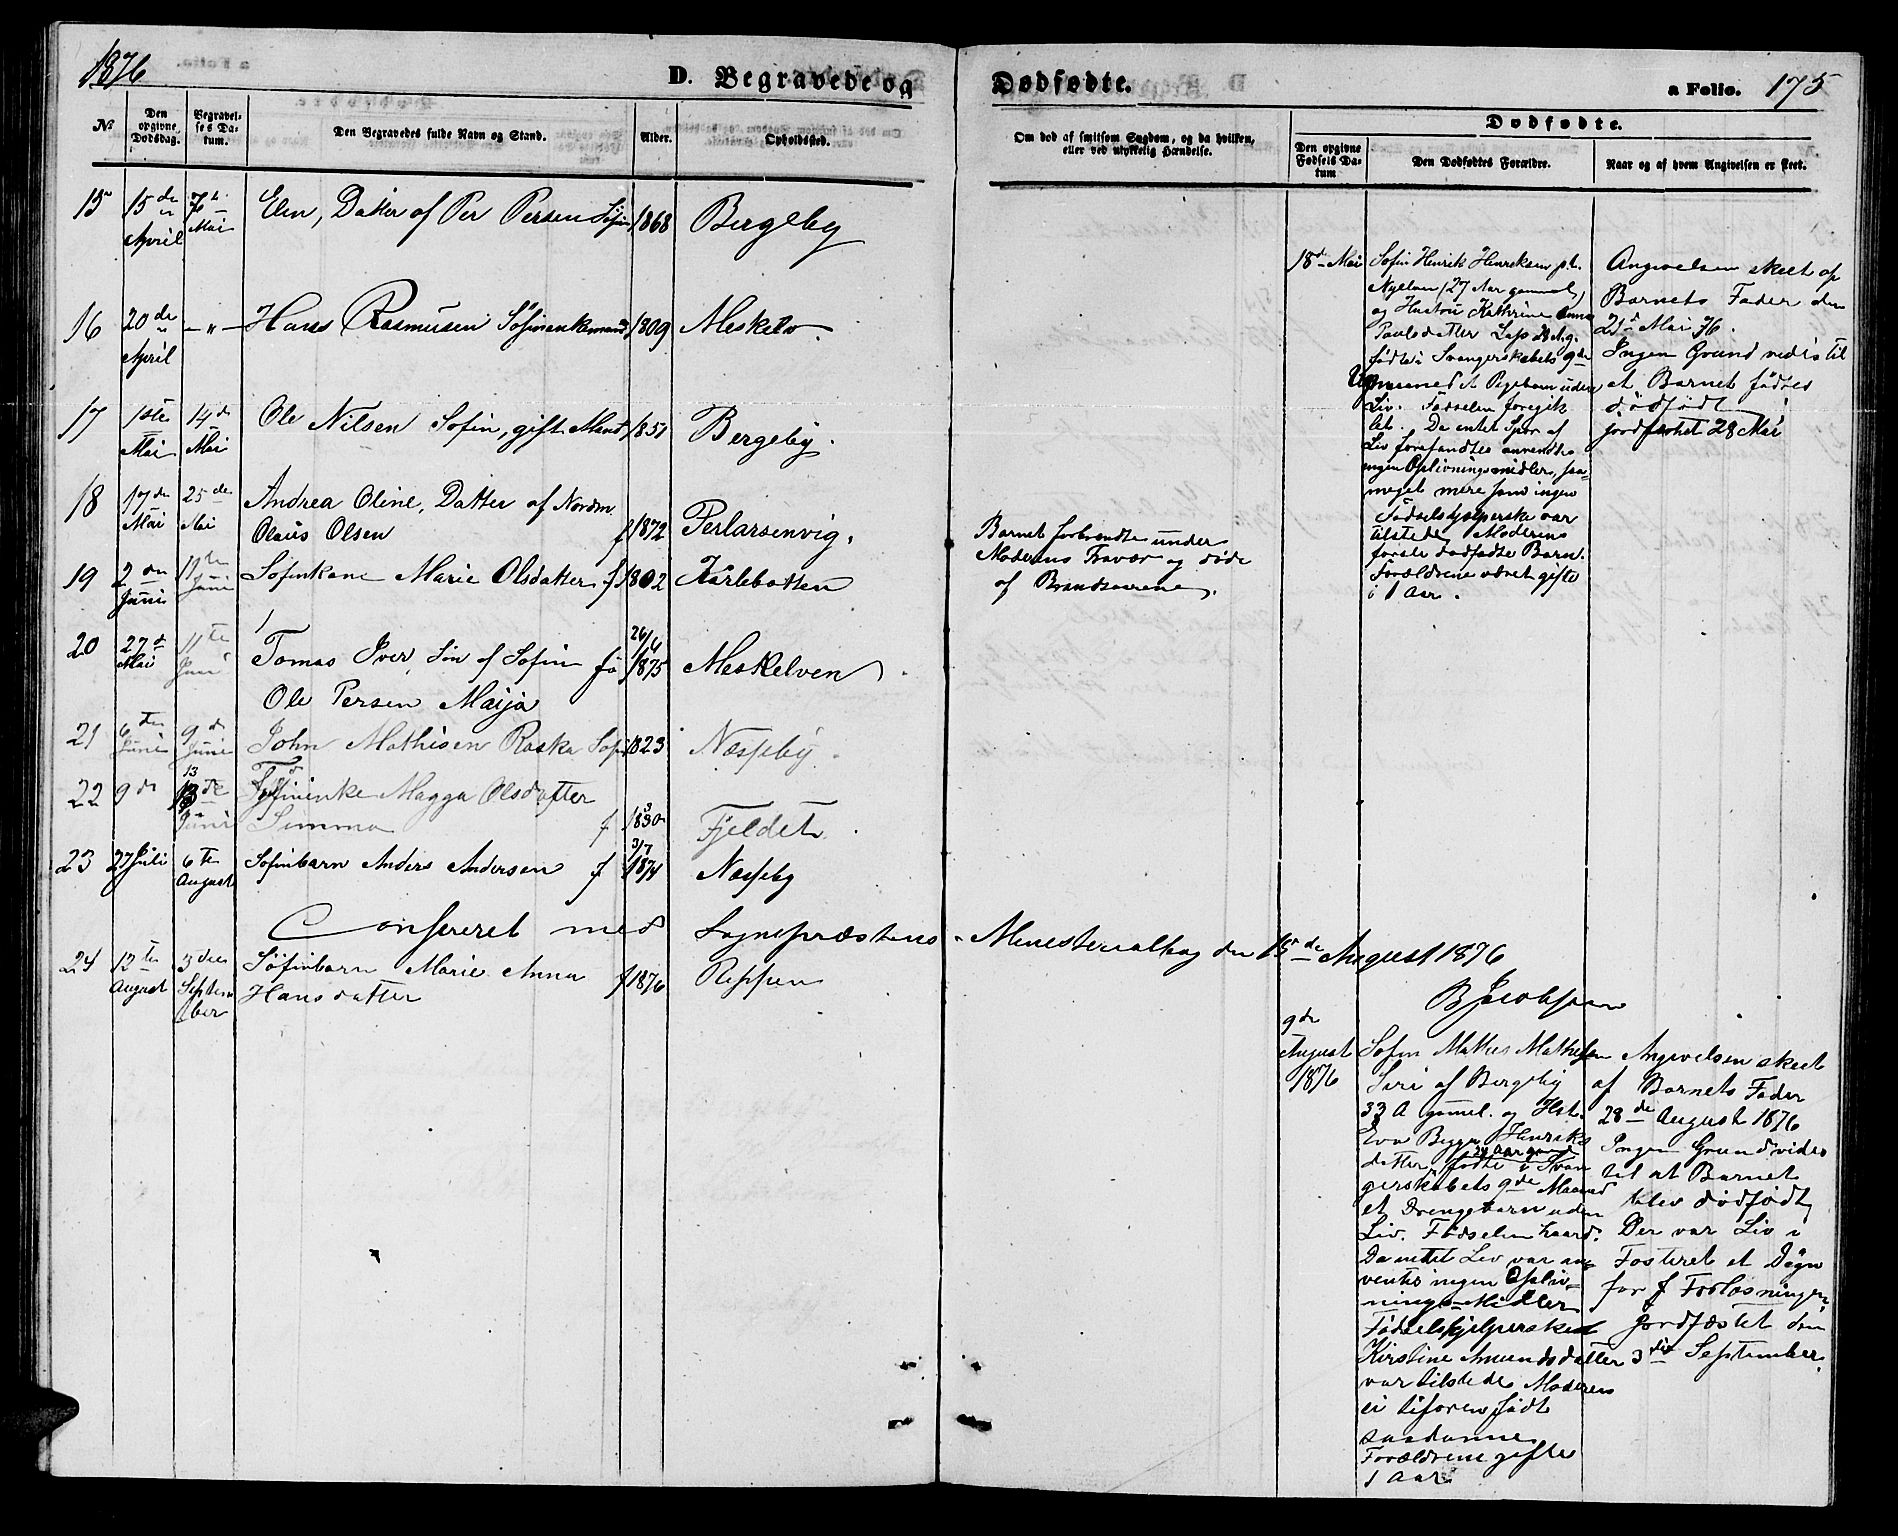 1876
D. Begravede og Dødfødte.
a Folio. 175
No
Den opgivne Dødsdag.
Begravelses Datum.
Den Begravedes fulde Navn og Stand.
Alder.
Opholdssted.
Om død af smitsom Sygdom, og da hvilken, eller ved ulykkelig Hændelse.
Dødfødte.
Den opgivne Fødsels Datum
Den Dødfødtes Forældre.
Naar og af hvem Angivelsen er skeet.
15 15de April 7de Mai Elen, Datter af Per Persen Søfin 1868 Bergeby
16 20de April — " — Hans Rasmusen Søfinenkemand 1809 Meskelv
17 1ste Mai 14de Mai Ole Nilsen Søfin, gift Mand 1851 Bergeby.
18 17de Mai 25de Mai Andrea Oline, Datter af Nordm.
Olaus Olsen f 1872 Perlarsenvig.
Barnet forbrændte under
Moderens Fravær og døde
af Brandsaarene.
19 2den Juni 11te Juni Søfinkone Marie Olsdatter f 1802 Karlebotten
20 27de Mai 11te Juni Tomas Iver, Søn af Søfin fø 26/6 1875 Meskelven
Ole Persen Maija
21 6te Juni 9de Juni John Mathisen Raska Søfin 1823 Næsseby.
22 9de 13de Juni Søfinenke Magga Olsdatter
Simma f 1830 Fjeldet.
23 27 Juli 6te August Søfinbarn Anders Andersen f 3/7 1874 Næsseby
Confereret med Sognepræstens Ministerialbog den 15de August 1876
B Jacobsen
24 12te August 3die September Søfinbarn Marie Anna
Hansdatter f 1876 Reppen
18de Mai
Søfin Henrik Henriksen p.t.
Nyelven (27 Aar gammel)
og Hustru Kathrine Anna
Paulsdatter
fødte i Svangerskabets 9de
Maaned et Pigebarn uden
Liv. Fødselen foregik
let. Da intet Spor af
Liv forefandtes anvendtes
ingen Oplivningsmidler, saa
meget mere som ingen
Fødselshjelperske var
tilstede. Moderens
første dødfødte Barn.
Forældrene været gifte
i 1 Aar.
Angivelsen skeet af
Barnets Fader den
21de Mai 76.
Ingen Grund vides til
at Barnet fødtes
dødfødt
jordfæstet 28 Mai
9de
August
1876
Søfin Mathis Mathisen
Siri af Bergeby
33 A gammel. og Hst.
Eva Bigga Henriks
datter, 24 Aar gammel
fødte i Svan
gerskabets 9de Maaned
et Drengebarn uden
Liv. Fødselen haard.
Da intet Liv var an-
ventes ingen Opliv-
nings-Midler
Fødselshjelperske
Kirstine Amundsdatter
var tilstede. Moderen
ei tiforen født
saadanne.
Forældrene gifte
1 Aar.
Angivelsen skeet
af Barnets Fader
28de August 1876
Ingen Grund vides
til at Barnet
blev dødfødt,
Der var Liv i
Fosteret et Døgn
før Forløsningen.
Jordfæstet den
3die September.